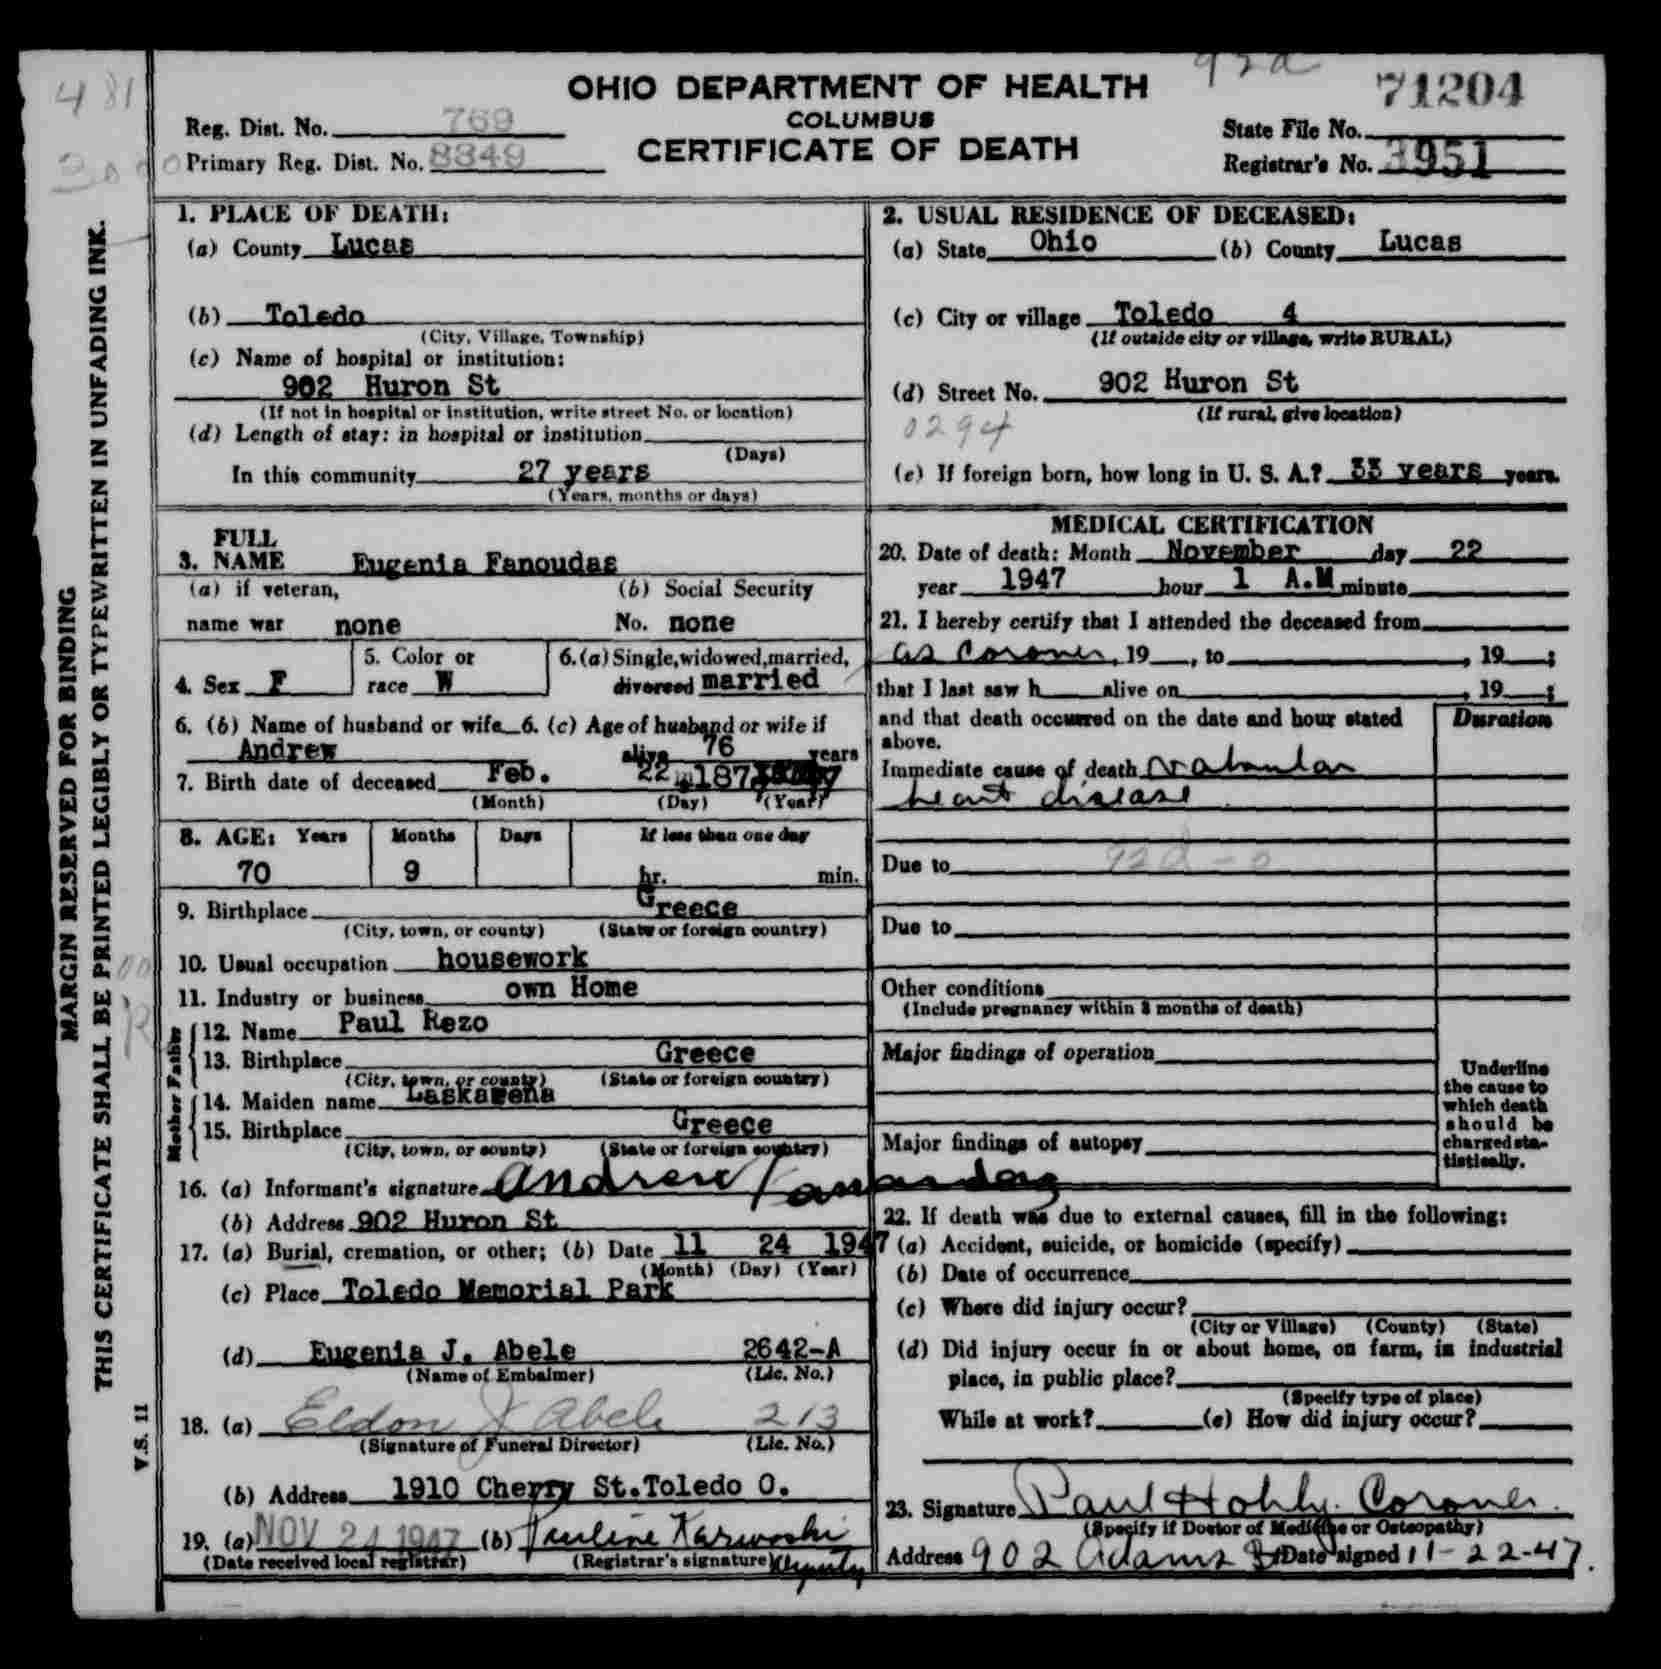 481
92d
71204
OHIO DEPARTMENT OF HEALTH
COLUMBUS
CERTIFICATE OF DEATH
Reg. Dist. No. 769
Primary Reg. Dist. No. 8849
State File No.
Registrar's No. 3951
MARGIN RESERVED FOR BINDING
THIS CERTIFICATE SHALL BE PRINTED LEGIBLY OR TYPEWRITTEN IN UNFADING INK.
V.S. 11
1. PLACE OF DEATH:
(a) County Lucas
(b) Toledo
(City, Village, Township)
(c) Name of hospital or institution:
902 Huron St
(If not in hospital or institution, write street No. or location)
(d) Length of stay: in hospital or institution
(Days)
In this community 27 years
(Years, months or days)
2. USUAL RESIDENCE OF DECEASED:
(a) State Ohio (b) County Lucas
(c) City or village Toledo 4
(If outside city or village, write RURAL)
(d) Street No. 902 Huron St
(If rural, give location)
0294
(e) If foreign born, how long in U. S. A.? 33 years years.
3. FULL NAME Eugenia Fanoudas
(a) if veteran, (b) Social Security
name war none No. none
4. Sex F 5. Color or race W 6. (a) Single, widowed, married, divorced married
6. (b) Name of husband or wife 6. (c) Age of husband or wife if
Andrew alive 76 years
7. Birth date of deceased Feb. 22 187
(Month) (Day) (Year)
8. AGE: Years Months Days If less than one day
70 9 hr. min.
9. Birthplace Greece
(City, town, or county) (State or foreign country)
10. Usual occupation housework
11. Industry or business own Home
Father
12. Name Paul Rezo
13. Birthplace Greece
(City, town, or county) (State or foreign country)
Mother
14. Maiden name Laskarena
15. Birthplace Greece
(City, town, or county) (State or foreign country)
16. (a) Informant's signature Andrew
(b) Address 902 Huron St
17. (a) Burial, cremation, or other; (b) Date 11 24 1947
(Month) (Day) (Year)
(c) Place Toledo Memorial Park
(d) Eugenia J. Abele 2642-A
(Name of Embalmer) (Lic. No.)
18. (a) Eldon J Abele 213
(Signature of Funeral Director) (Lic. No.)
(b) Address 1910 Cherry St.Toledo O.
19. (a) NOV 24 1947 (b) Pauline Karwoski
(Date received local registrar) (Registrar's signature) Deputy
MEDICAL CERTIFICATION
20. Date of death: Month November day 22
year 1947 hour 1 A.M minute
21. I hereby certify that I attended the deceased from
as Coroner, 19 , to , 19 ;
that I last saw h alive on , 19 ;
and that death occurred on the date and hour stated
above.
Duration
Immediate cause of death Valvular
heart disease
Due to 92d
Due to
Other conditions
(Include pregnancy within 3 months of death)
Major findings of operation
Major findings of autopsy
Underline
the cause to
which death
should be
charged sta-
tistically.
22. If death was due to external causes, fill in the following:
(a) Accident, suicide, or homicide (specify)
(b) Date of occurrence
(c) Where did injury occur?
(City or Village) (County) (State)
(d) Did injury occur in or about home, on farm, in industrial
place, in public place?
(Specify type of place)
While at work? (e) How did injury occur?
23. Signature Paul Hohly. Coroner.
(Specify if Doctor of Medicine or Osteopathy)
Address 902 Adams St Date signed 11-22-47.